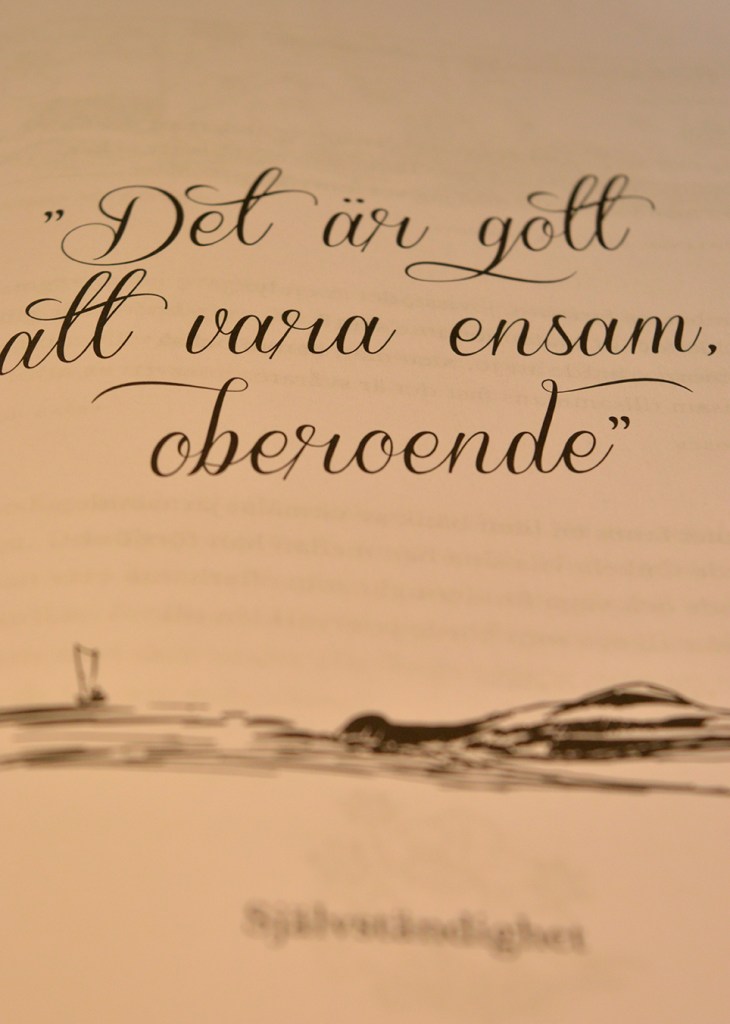 ”Det är gott
att vara ensam,
oberoende”
Självständighet